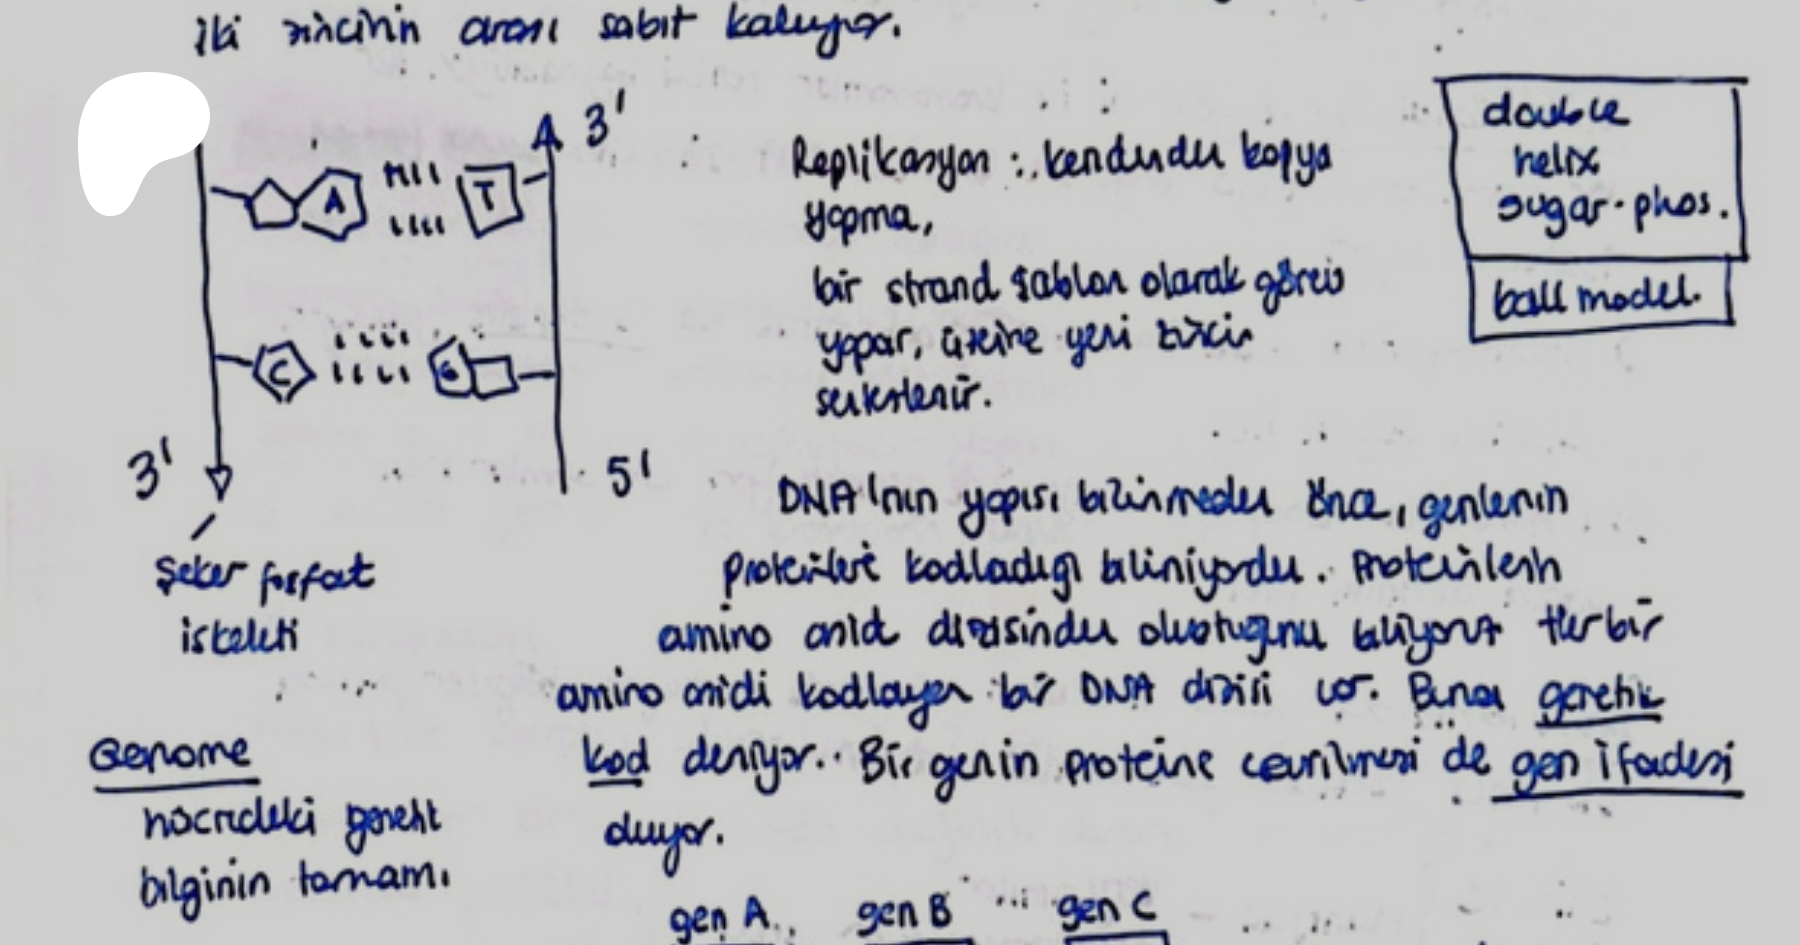 iki zincirin arası sabit kalıyor.
3'
A T
C G
3' 5'
Şeker fosfat
iskeleti
Replikasyon : kendudu kopya
yapma,
bir strand şablon olarak görev
yapar, üzerine yeni zincir
sentezlenir.
double
helix
sugar-phos.
ball model.
DNA'nın yapısı bilinmeden önce, genlerin
proteinleri kodladığı biliniyordu. Proteinlerin
amino asid dizisinden oluştuğunu biliyoruz Her bir
amino asidi kodlayan bir DNA dizisi var. Buna genetik
kod deniyor. Bir genin proteine çevrilmesi de gen ifadesi
oluyor.
Genome
hücredeki genetik
bilginin tamamı
gen A gen B gen C